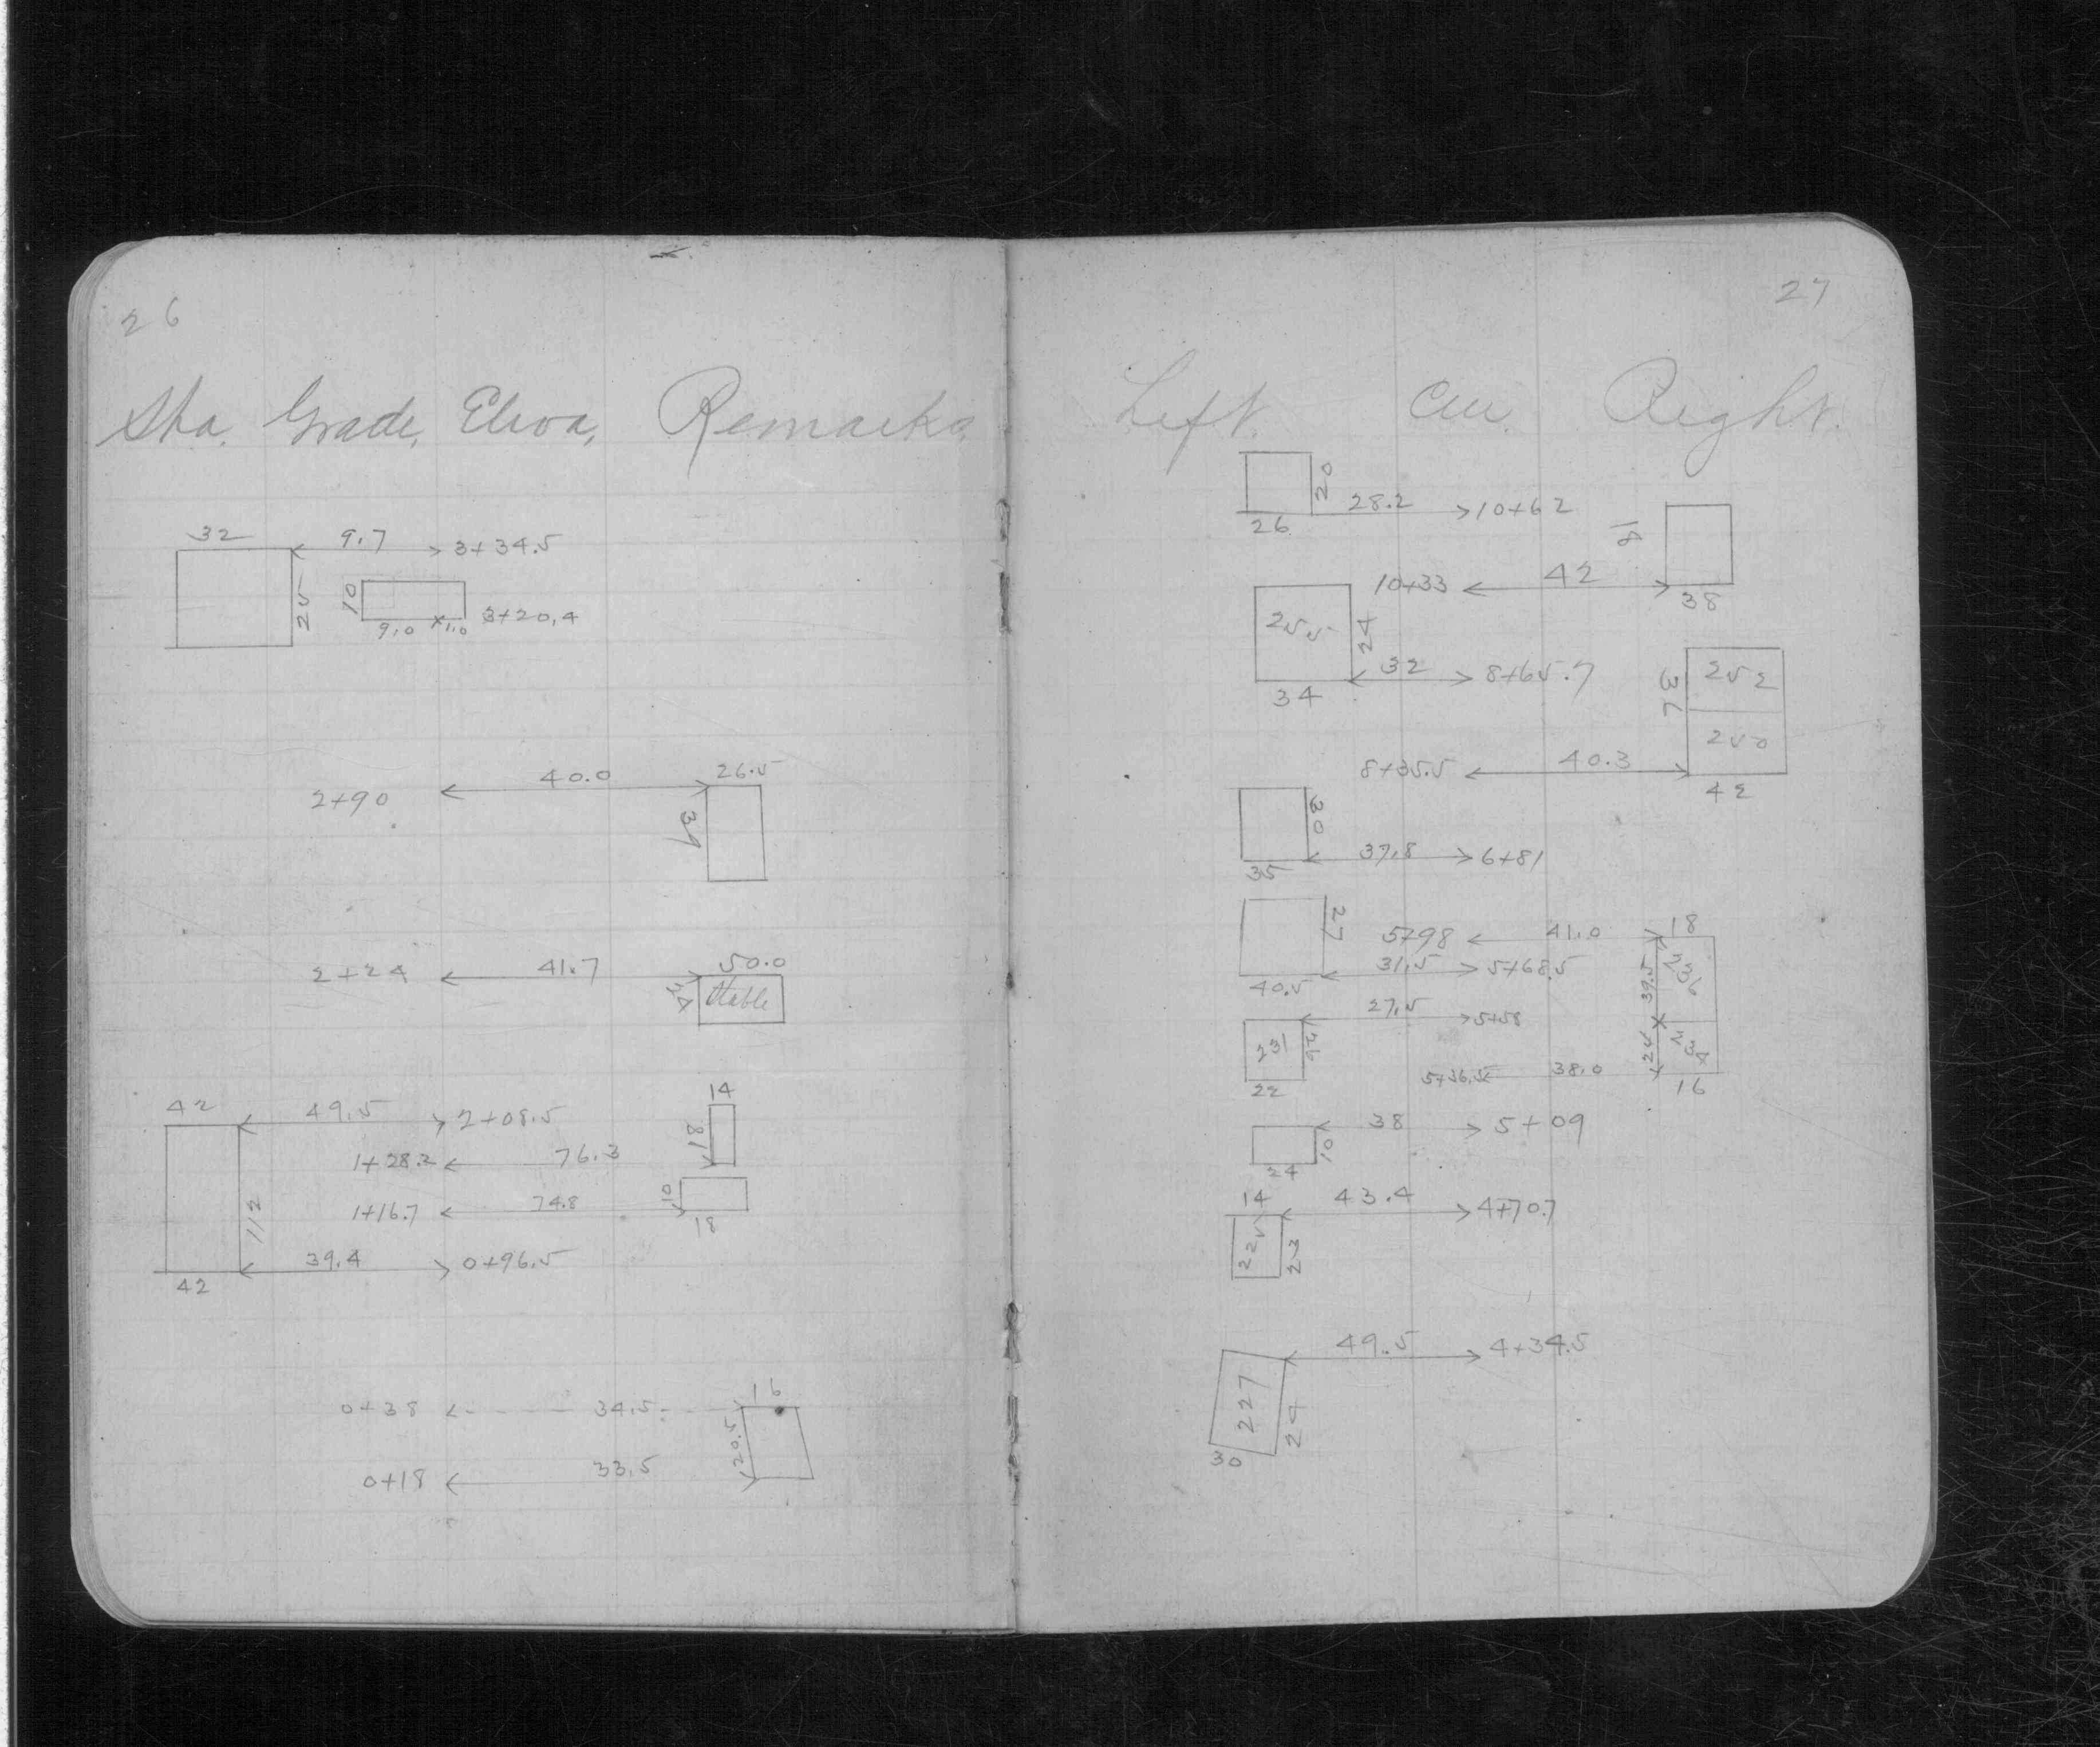 26
Sta. Grade, Eleva, Remarks.
32 9.7 3+34.5
25 10
9.0 x1.0 3+20.4
26.5
2+90 40.0
39
50.0
2+24 41.7
Stable
14
42 49.5 2+08.5
18
1+28.2 76.3
112 10
1+16.7 74.8
18
39.4 0+96.5
42
16
0+38 34.5
20.5
0+18 33.5
27
Left. Cen. Right.
20
28.2 10+62
26
18
10+33 42
38
255 24
32 8+65.7
34
36 252
250
8+35.5 40.3
42
30
37.8 6+81
35
27 18
5+98 41.0
31.5 5+68.5
40.5
39.5 236
27.5 5+58
231 26
24 234
5+36.5 38.0
22 16
38 5+09
10
24
14 43.4 4+70.7
225 23
49.5 4+34.5
227 24
30